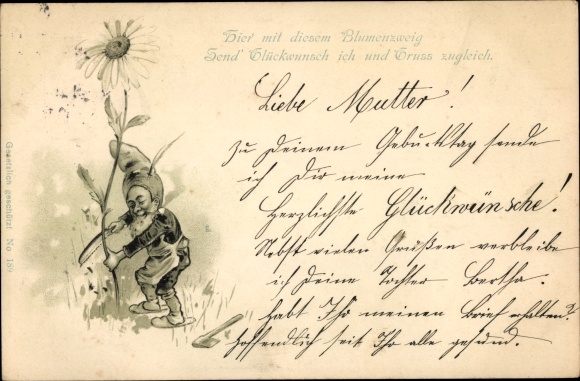 Hier mit diesem Blumenzweig
Send' Glückwunsch ich und Gruss zugleich.
Liebe Mutter!
Zu Deinem Geburtstag sende
ich Dir meine
Herzlichste Glückwünsche!
Nebst vielen Grüßen verbleibe
ich Deine Tochter Bertha.
Habt Ihr meinen Brief erhalten?
Hoffendlich seit Ihr alle gesund.
Gesetzlich geschützt No 189